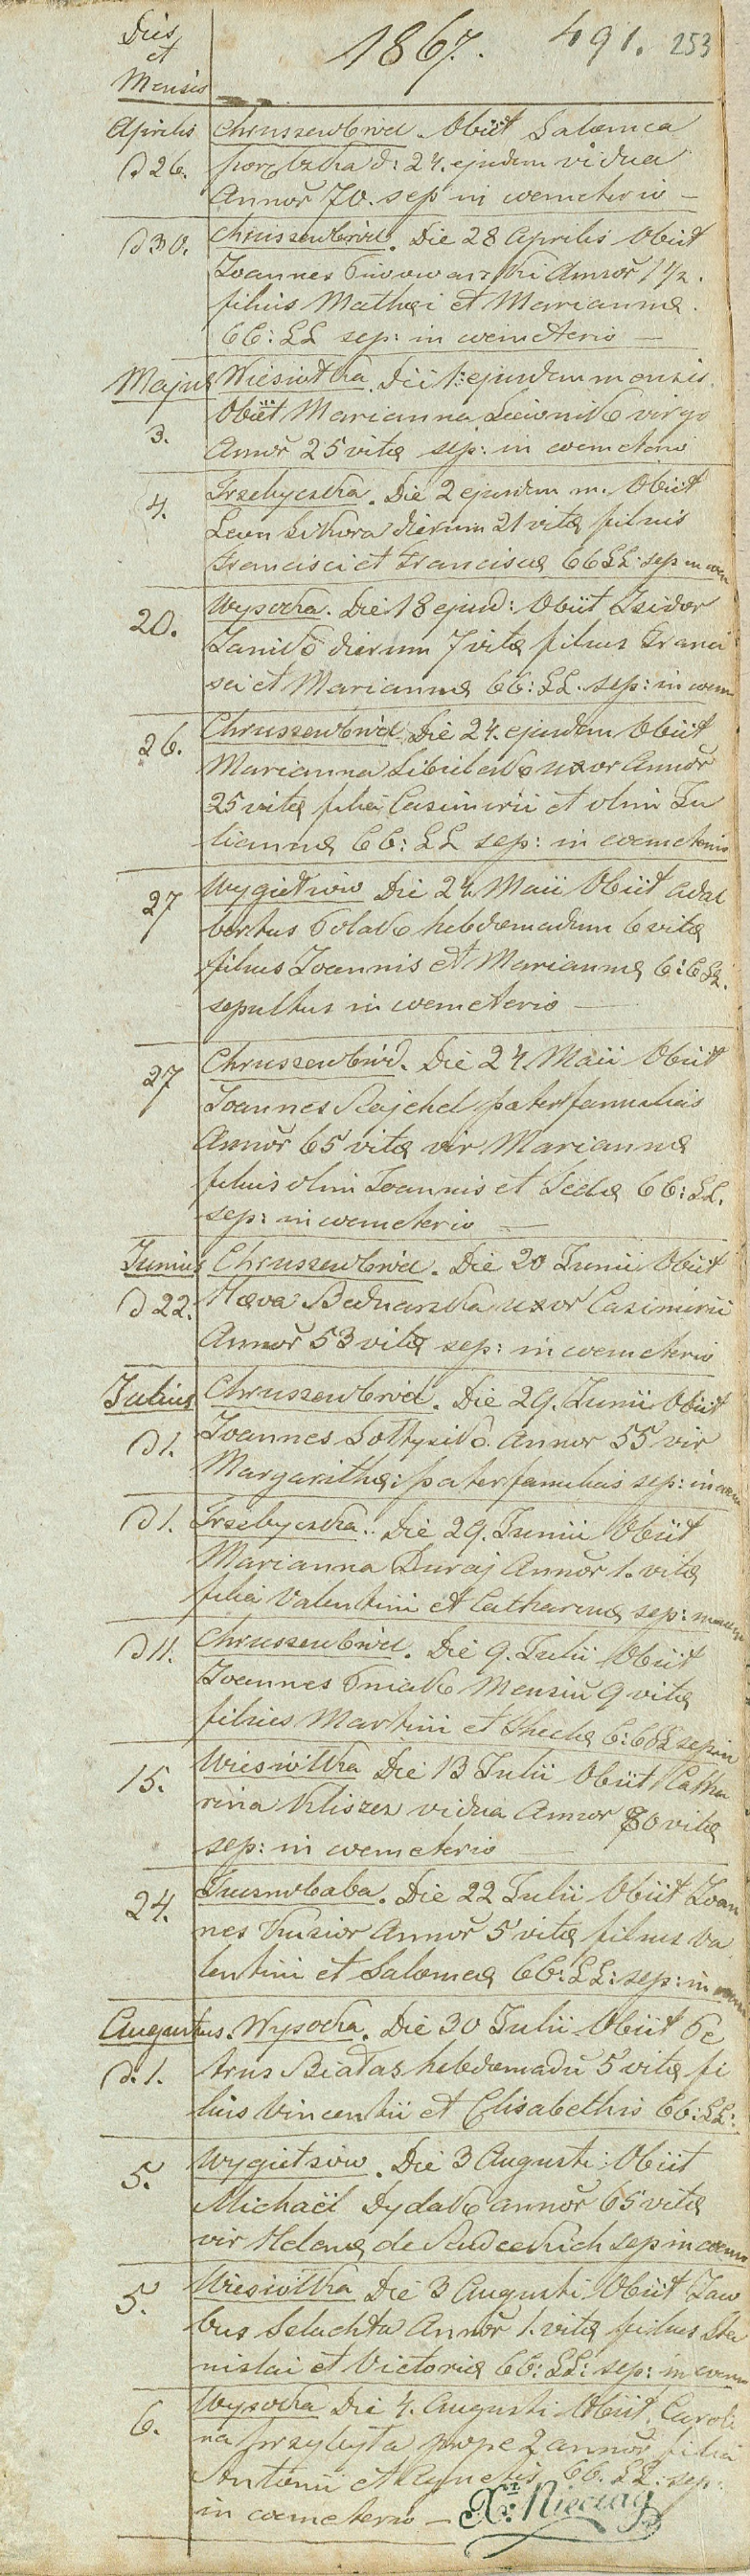 Dies
et
Mensis
1867. 491. 253
Aprilis Chruszczobród. Obiit Salomea
d 26. Porębska d: 24. ejusdem vidua
Annor̃ 70. sep in coemeterio —
d 30. Chruszczobród. Die 28 Aprilis Obiit
Joannes Annor̃ 1 1/2.
filius Mathæi et Mariannæ
CC: LL sep: in coemeterio —
Majus Wiesiółka. Die 1. ejusdem mensis
3. Obiit Marianna virgo
Annor̃ 25 vitæ sep: in coemeterio
4. Trzebyczka. Die 2 ejusdem m. Obiit
Leon Sikora dierum 21 vitæ filius
Francisci et Franciscæ CC LL: sep in coem
20. Wysocka. Die 18 ejusd: Obiit Isidor
Janik dierum 7 vitæ filius Franci
sci et Mariannæ CC: LL. sep: in coem
26. Chruszczobród. Die 24. ejusdem Obiit
Marianna uxor Annor̃
25 vitæ filia Casimirii et olim Ju
liannæ CC: LL sep: in coemeterio
27 Wygiełzów Die 24 Maii Obiit Adal
bertus Polak hebdomadum 6 vitæ
filius Joannis et Mariannæ C: C LL.
sepultus in coemeterio —
27 Chruszczobród. Die 24 Maii Obiit
Joannes Rajchel paterfamilias
Annor̃ 65 vitæ vir Mariannæ
filius olim Joannis et CC: LL.
sep: in coemeterio —
Junius Chruszczobród. Die 20 Junii Obiit
d 22. Hæva Bednarska uxor Casimirii
Annor̃ 53 vitæ sep: in coemeterio
Julius Chruszczobród. Die 29. Junii Obiit
d 1. Joannes Sołtysik Annor 55 vir
Margarithæ: paterfamilias sep: in coem
d 1. Trzebyczka.. Die 29. Junii Obiit
Marianna Duraj Annor̃ 1. vitæ
filia Valentini et Catharinæ sep: in coem
d 11. Chruszczobród. Die 9. Julii Obiit
Joannes Gniak Mensiũ 9 vitæ
filius Martini et Theclæ C: C LL sep in
15. Wiesiółka Die 13 Julii Obiit Catha
rina Kliszcz vidua Annor 80 vitæ
sep: in coemeterio —
24. Tucznobaba. Die 22 Julii Obiit Joan
nes Kuzior Annor̃ 5 vitæ filius Va
lentini et Salomeæ CC: LL: sep: in coem
Augustus. Wysocka. Die 30 Julii Obiit Pe
d. 1. trus Białas hebdomadũ 5 vitæ fi
lius Vincentii et Elisabethis CC: LL:
5. Wygiełzów. Die 3 Augusti Obiit
Michaël Dydak annor̃ 65 vitæ
vir Helenæ de sep in coem
5. Wiesiółka Die 3 Augusti Obiit Jaco
bus Szlachta Annor̃ 1. vitæ filius Sta
nislai et Victoriæ CC: LL: sep: in coem
6. Wysocka Die 4. Augusti Obiit Caroli
na Przybyła prope 2 annor̃ filia
Antonii et Agnetis CC. LL: sep:
in coemeterio — X. Nieciąg